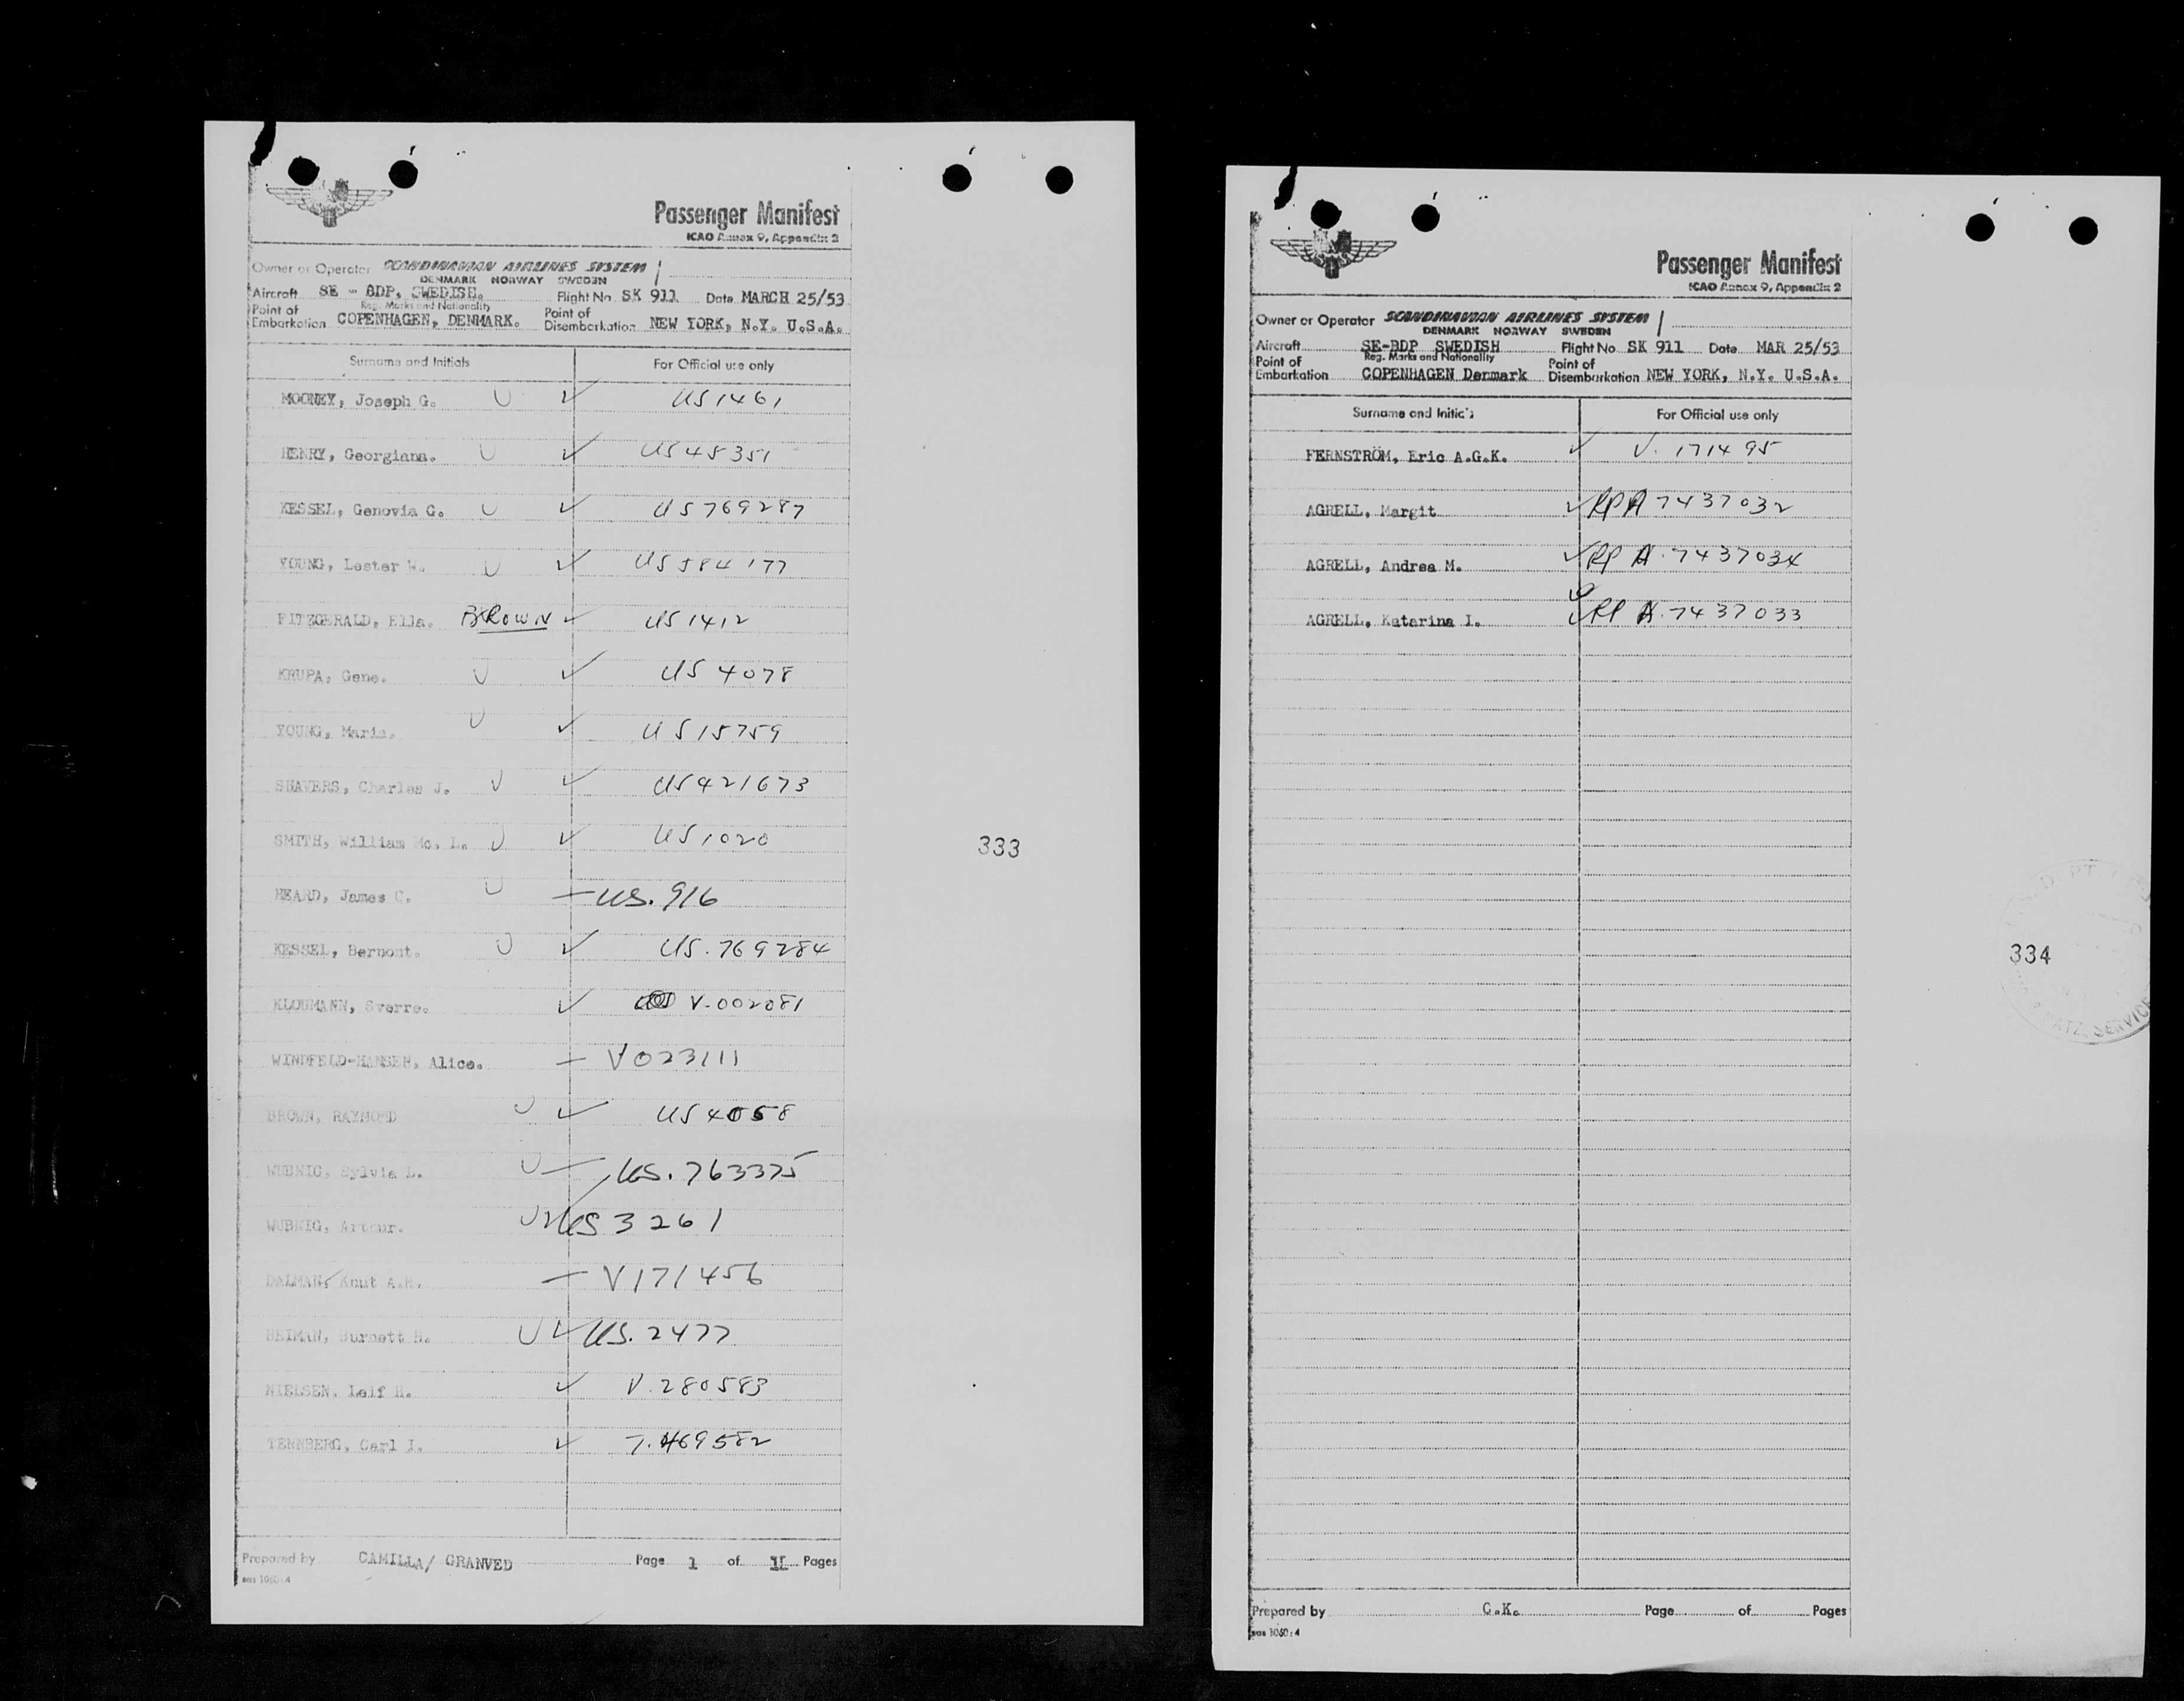 Passenger Manifest
ICAO Annex 9, Appendix 2
Owner or Operator SCANDINAVIAN AIRLINES SYSTEM
DENMARK NORWAY SWEDEN
Aircraft SE - BDP, SWEDISH. Flight No. SK 911 Date MARCH 25/53
Reg. Marks and Nationality
Point of Embarkation COPENHAGEN, DENMARK. Point of Disembarkation NEW YORK, N.Y. U.S.A.
Surname and Initials For Official use only
MOONEY, Joseph G. U ✓ US 1461
HENRY, Georgiana. U ✓ US 45351
KESSEL, Genovia G. U ✓ US 769287
YOUNG, Lester W. U ✓ US 584177
FITZGERALD, Ella. BROWN ✓ US 1412
KRUPA, Gene. U ✓ US 4078
YOUNG, Marie. U ✓ US 15759
SHAVERS, Charles J. U ✓ US 421673
SMITH, William Mc. L. U ✓ US 1020
HEARD, James C. U — US. 916
KESSEL, Bernont. U ✓ US. 769284
KLOUMANN, Sverre. ✓ V-002081
WINDFELD-HANSEN, Alice. — V023111
BROWN, RAYMOND U ✓ US 4058
WUBNIG, Sylvia L. U — US. 763375
WUBNIG, Arthur. U US 3261
DALMAN, Knut A.H. — V171456
HEIMAN, Burnett H. U ✓ US. 2477
NIELSEN, Leif H. ✓ V. 280583
TENNBERG, Carl I. ✓ 7.469582
333
Prepared by CAMILLA/ GRANVED Page 1 of II Pages
sas 1060:4
Passenger Manifest
ICAO Annex 9, Appendix 2
Owner or Operator SCANDINAVIAN AIRLINES SYSTEM
DENMARK NORWAY SWEDEN
Aircraft SE-BDP SWEDISH Flight No SK 911 Date MAR 25/53
Reg. Marks and Nationality
Point of Embarkation COPENHAGEN Denmark Point of Disembarkation NEW YORK, N.Y. U.S.A.
Surname and Initials For Official use only
FERNSTRÖM, Eric A.G.K. ✓ V. 171495
AGRELL, Margit ✓ RP A 7437032
AGRELL, Andrea M. ✓ RP A. 7437034
AGRELL, Katarina I. ✓ RP A. 7437033
334
Prepared by C.K. Page of Pages
sas 1060:4